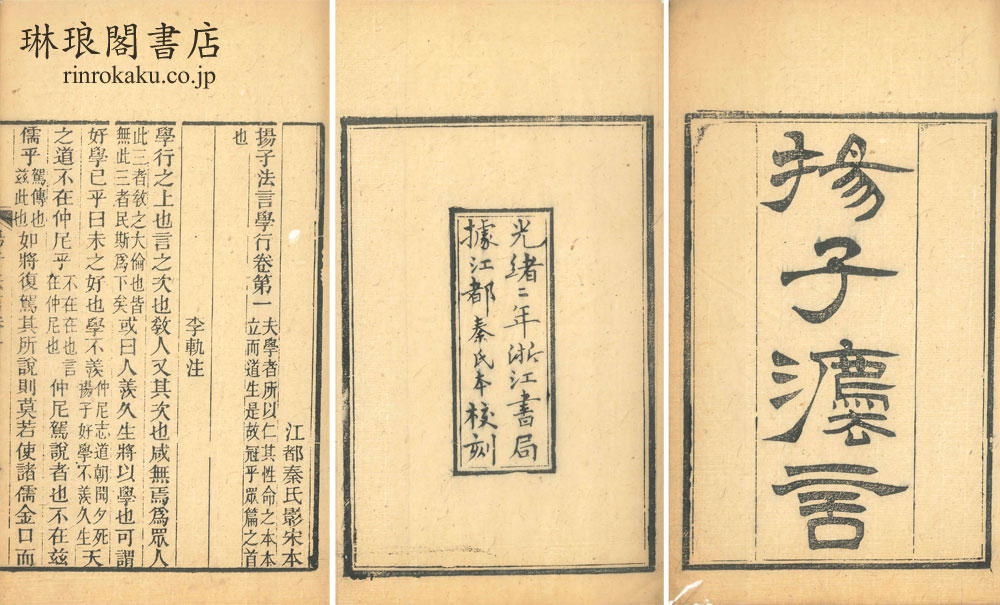 琳琅閣書店
rinrokaku.co.jp
揚子灋言
光緒二年浙江書局
據江都秦氏本校刻
江都秦氏影宋本
揚子法言學行卷第一 夫學者所以仁其性命之本本
立而道生是故冠乎眾篇之首
也
李軌注
學行之上也言之次也敎人又其次也咸無焉為眾人
此三者敎之大倫也皆
無此三者民斯為下矣
或曰人羨久生將以學也可謂
好學已乎曰未之好也學不羨
仲尼志道朝聞夕死
揚子好學不羨久生
天
之道不在仲尼乎
不在在也言
在仲尼也
仲尼駕說者也不在茲
儒乎
駕傳也
茲此也
如將復駕其所說則莫若使諸儒金口而